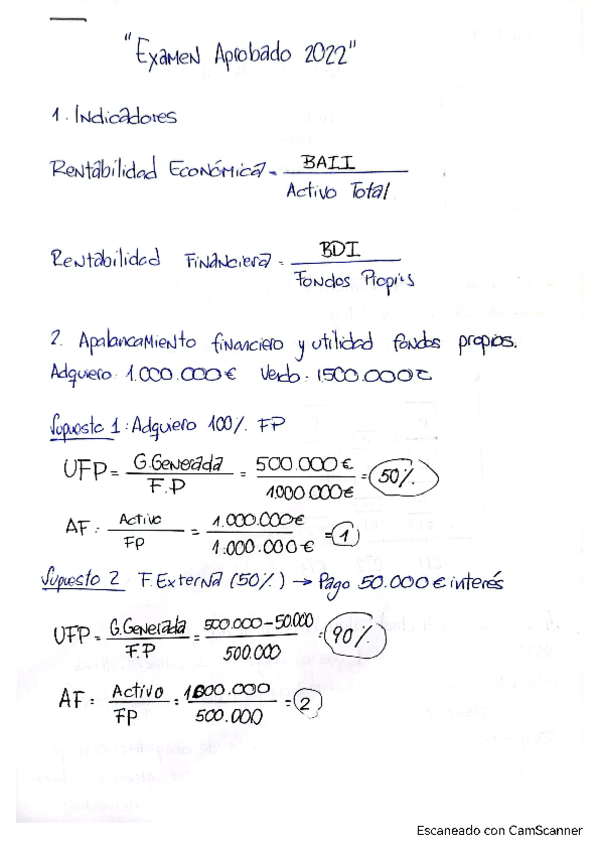 "Examen Aprobado 2022"
1. Indicadores
Rentabilidad Económica = BAII / Activo Total
Rentabilidad Financiera = BDI / Fondos Propios
2. Apalancamiento financiero y utilidad fondos propios.
Adquiero: 1.000.000€ Vendo: 1500.000€
Supuesto 1: Adquiero 100% FP
UFP = G.Generada / F.P = 500.000€ / 1.000.000€ = 50%
AF: Activo / FP = 1.000.000€ / 1.000.000€ = 1
Supuesto 2: F. Externa (50%) → Pago 50.000€ interés
UFP = G.Generada / F.P = 500.000-50.000 / 500.000 = 90%
AF: Activo / FP = 1.000.000 / 500.000 = 2
Escaneado con CamScanner